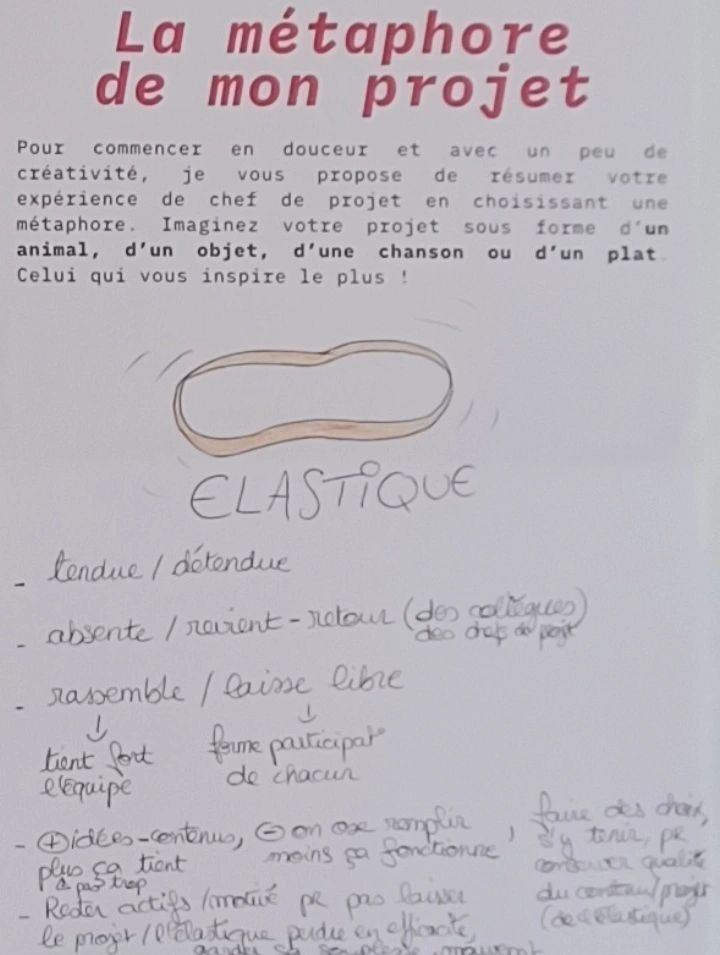 La métaphore
de mon projet
Pour commencer en douceur et avec un peu de
créativité, je vous propose de résumer votre
expérience de chef de projet en choisissant une
métaphore. Imaginez votre projet sous forme d'un
animal, d'un objet, d'une chanson ou d'un plat.
Celui qui vous inspire le plus !
ELASTIQUE
- tendue / détendue
- absente / revient - retour (des collègues)
des chefs de projt
- rassemble / laisse libre
↓ ↓
tient fort forme participat°
l'équipe de chacun
- ⊕ idées-contenus, ⊖ on ose remplir , faire des choix,
plus ça tient moins ça fonctionne s'y tenir, pr
& pas trop conserver qualité
- Rester actifs / motivé pr pas laisser du contenu/projet
le projet / l'élastique perdre en efficacité, (de l'élastique)
garder sa souplesse